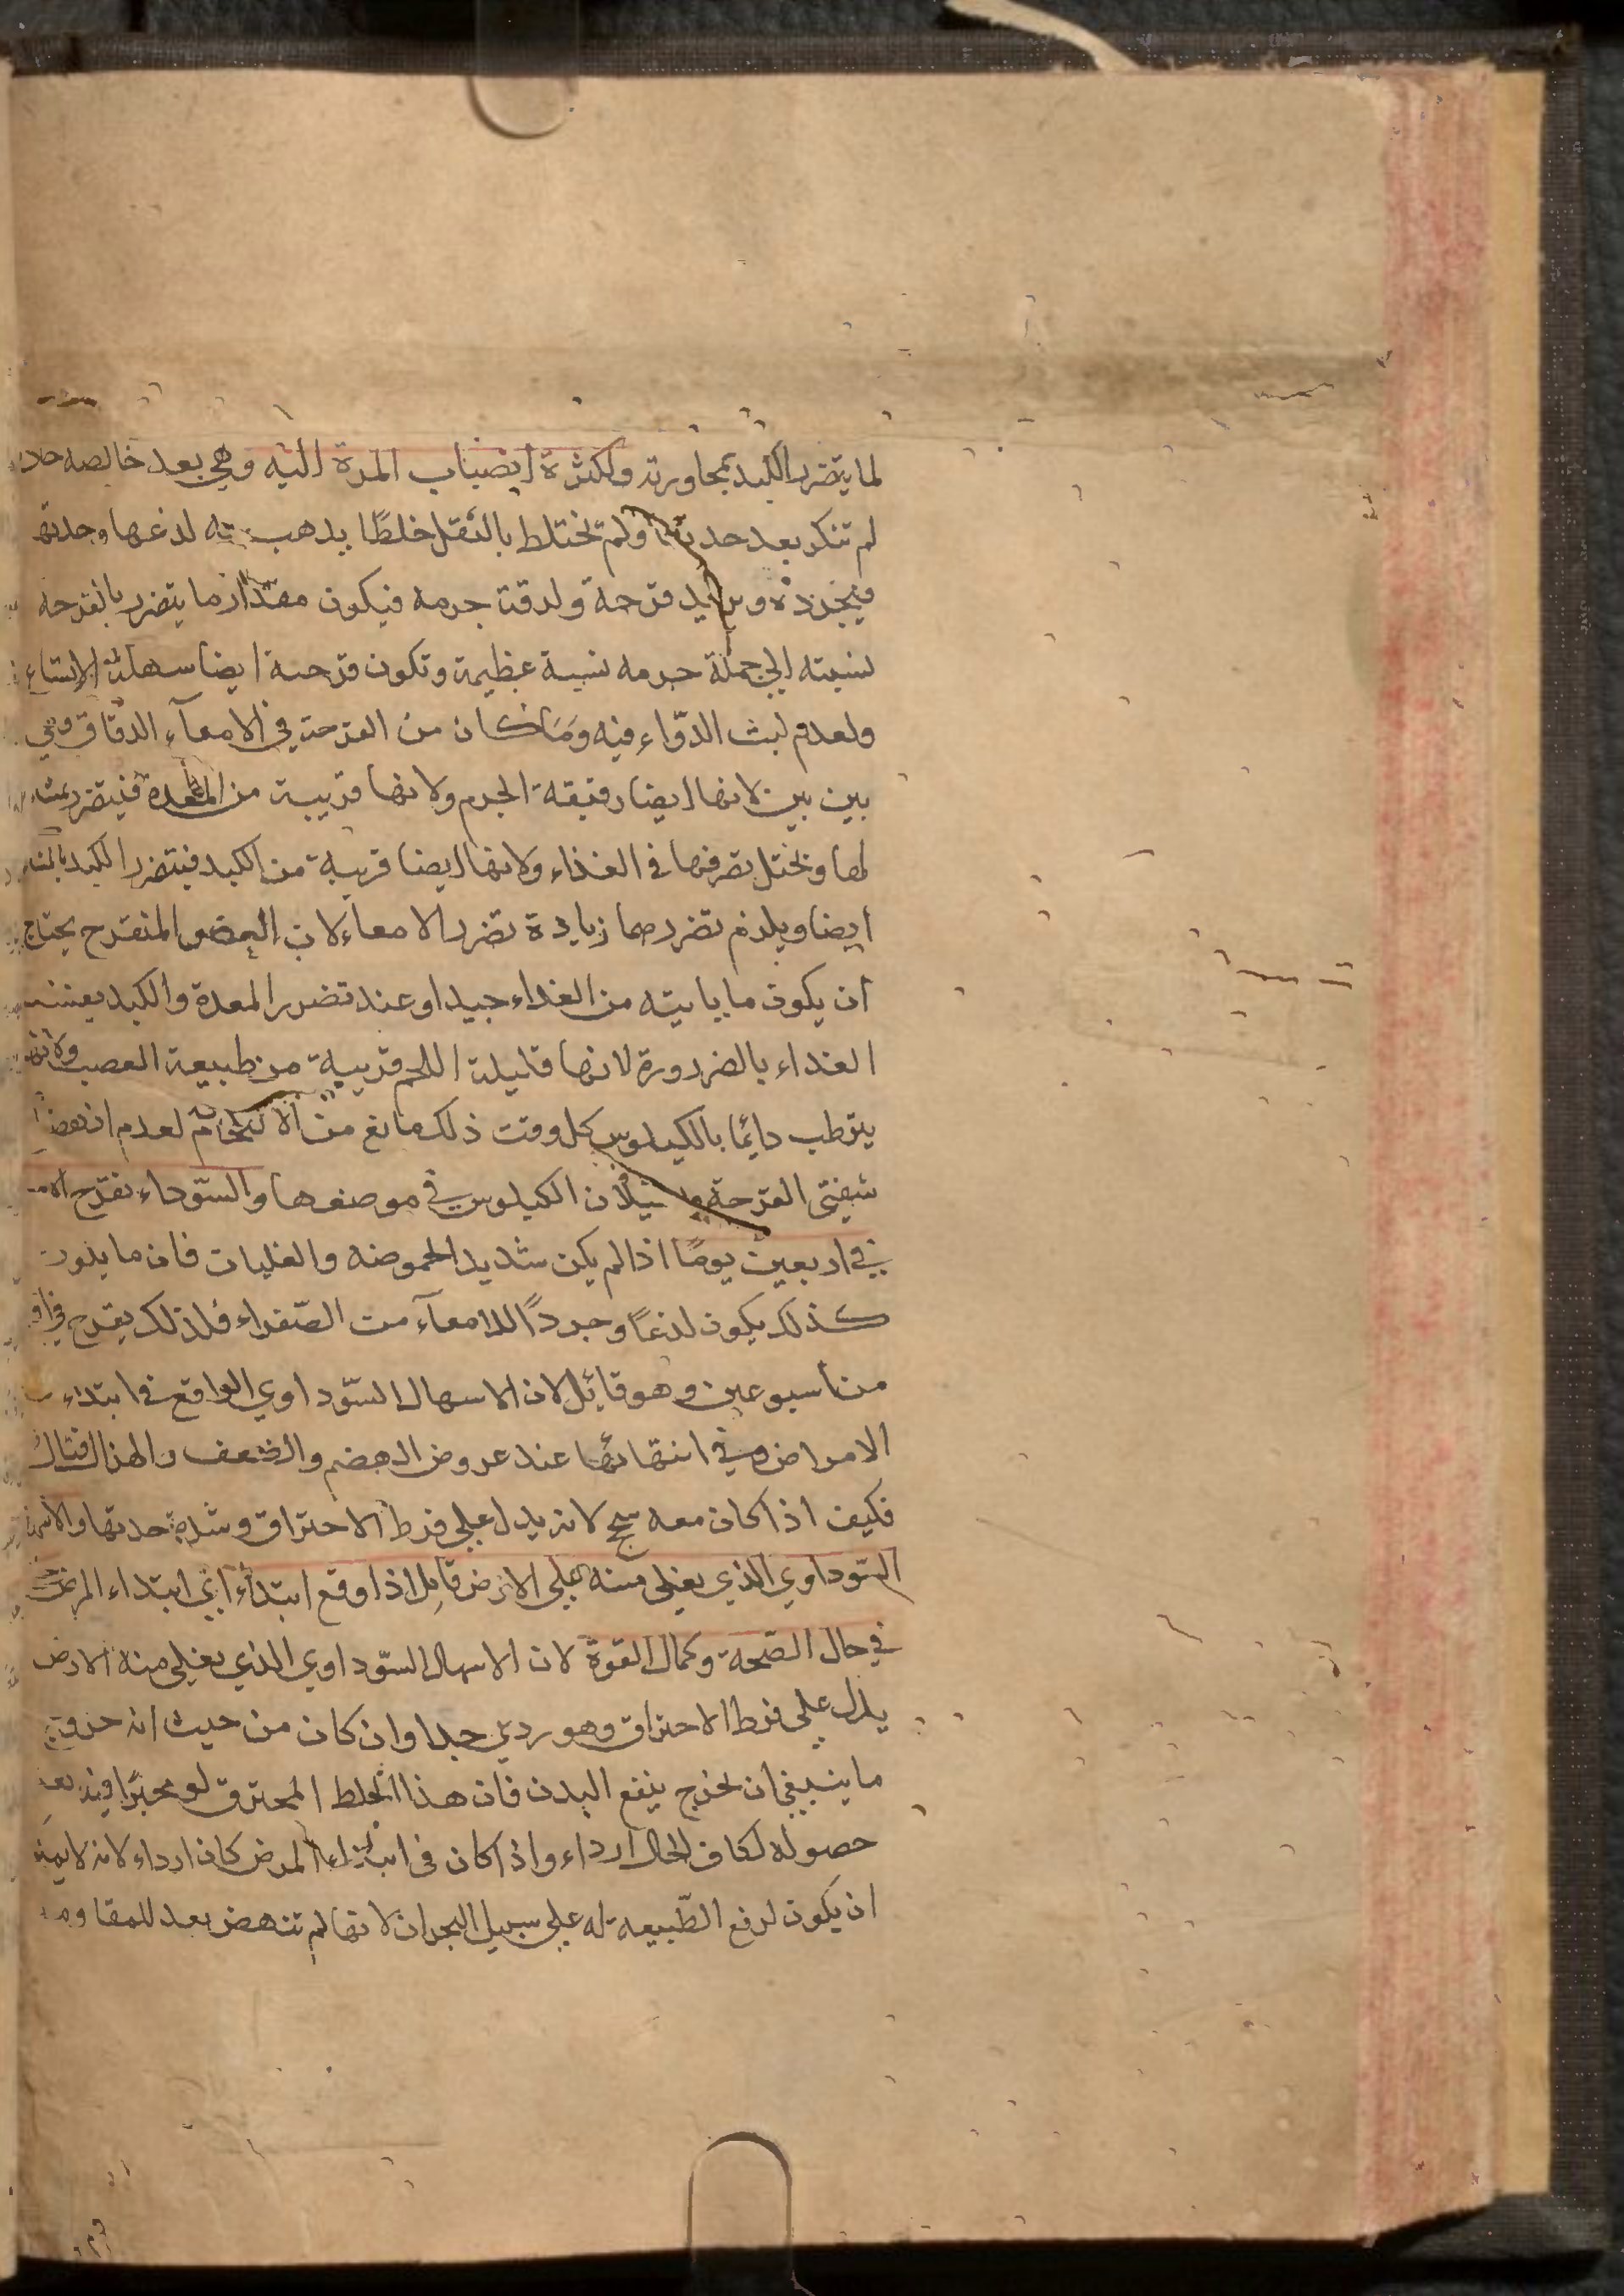 لما يتضرر الكبد بمجاورته ولكثرة انصباب المرة اليه وهي بعد خالصه
لم تنكر بعد حدتها ولم تختلط بالثقل خلطًا يذهب به لذعها وحدتها
فيجرده ويزيد قرحة ولدقة جرمه فيكون مقدار ما يتضرر بالقرحه
نسبته الي جملة جرمه نسبة عظيمة وتكون قرحته ايضا سهلة الاتساع
ولعدم لبث الدّواء فيه وَمَا كان من القرحة في الامعآء الدقاق فهي
بين بين لانها ايضا رقيقة الجرم ولانها قريبة من المعدة فيتضرر
لها ويختل تصرفها في الغذاء ولانها ايضا قريبة من الكبد فيتضرر الكبد
ايضا ويلزم تضررهما زيادة تضرر الامعاء لان العضو المتقرح يحتاج
ان يكون ما ياتيه من الغداء جيدا وعند تضرر المعدة والكبد يفسد
الغداء بالضرورة لانها قليلة اللحم قريبة من طبيعة العصب ولانها
يترطب دايمًا بالكيلوس كل وقت ذلك مانع من الالتحام لعدم
شفتي القرحة لان الكيلوس في موضعها والسّوداء تقرح
في اربعين يومًا اذا لم يكن شديد الحموضه والغليان فان ما يكون
كذلك يكون لذعًا وجردًا للامعآء من الصّفراء فلذلك يقرح في
من اسبوعين وهو قاتل لان الاسهال السّوداوي الواقع في ابتداء
الامراض وفي انتهائها عند عروض الهضم والضعف والهزال قتال
فكيف اذا كان معه سحج لانه يدل علي فرط الاحتراق وشدة حدتها والاسهال
السّوداوي الذي يغلي منه علي الارض قاتل اذا وقع ابتداءً اي ابتداء المرض
في حال الصّحة وكمال القوة لان الاسهال السّوداوي الذي يغلي منه الارض
يدل علي فرط الاحتراق وهو ردي جدا وان كان من حيث انه خروج
ما ينبغي ان يخرج ينفع البدن فان هذا الخلط المحترق لو بعد
حصوله لكان الحال ارداء واذا كان في ابتداء المرض كان ارداء لانه لا يمكن
ان يكون لدفع الطّبيعة له علي سبيل البحران لانها لم تنهض بعد للمقاومة